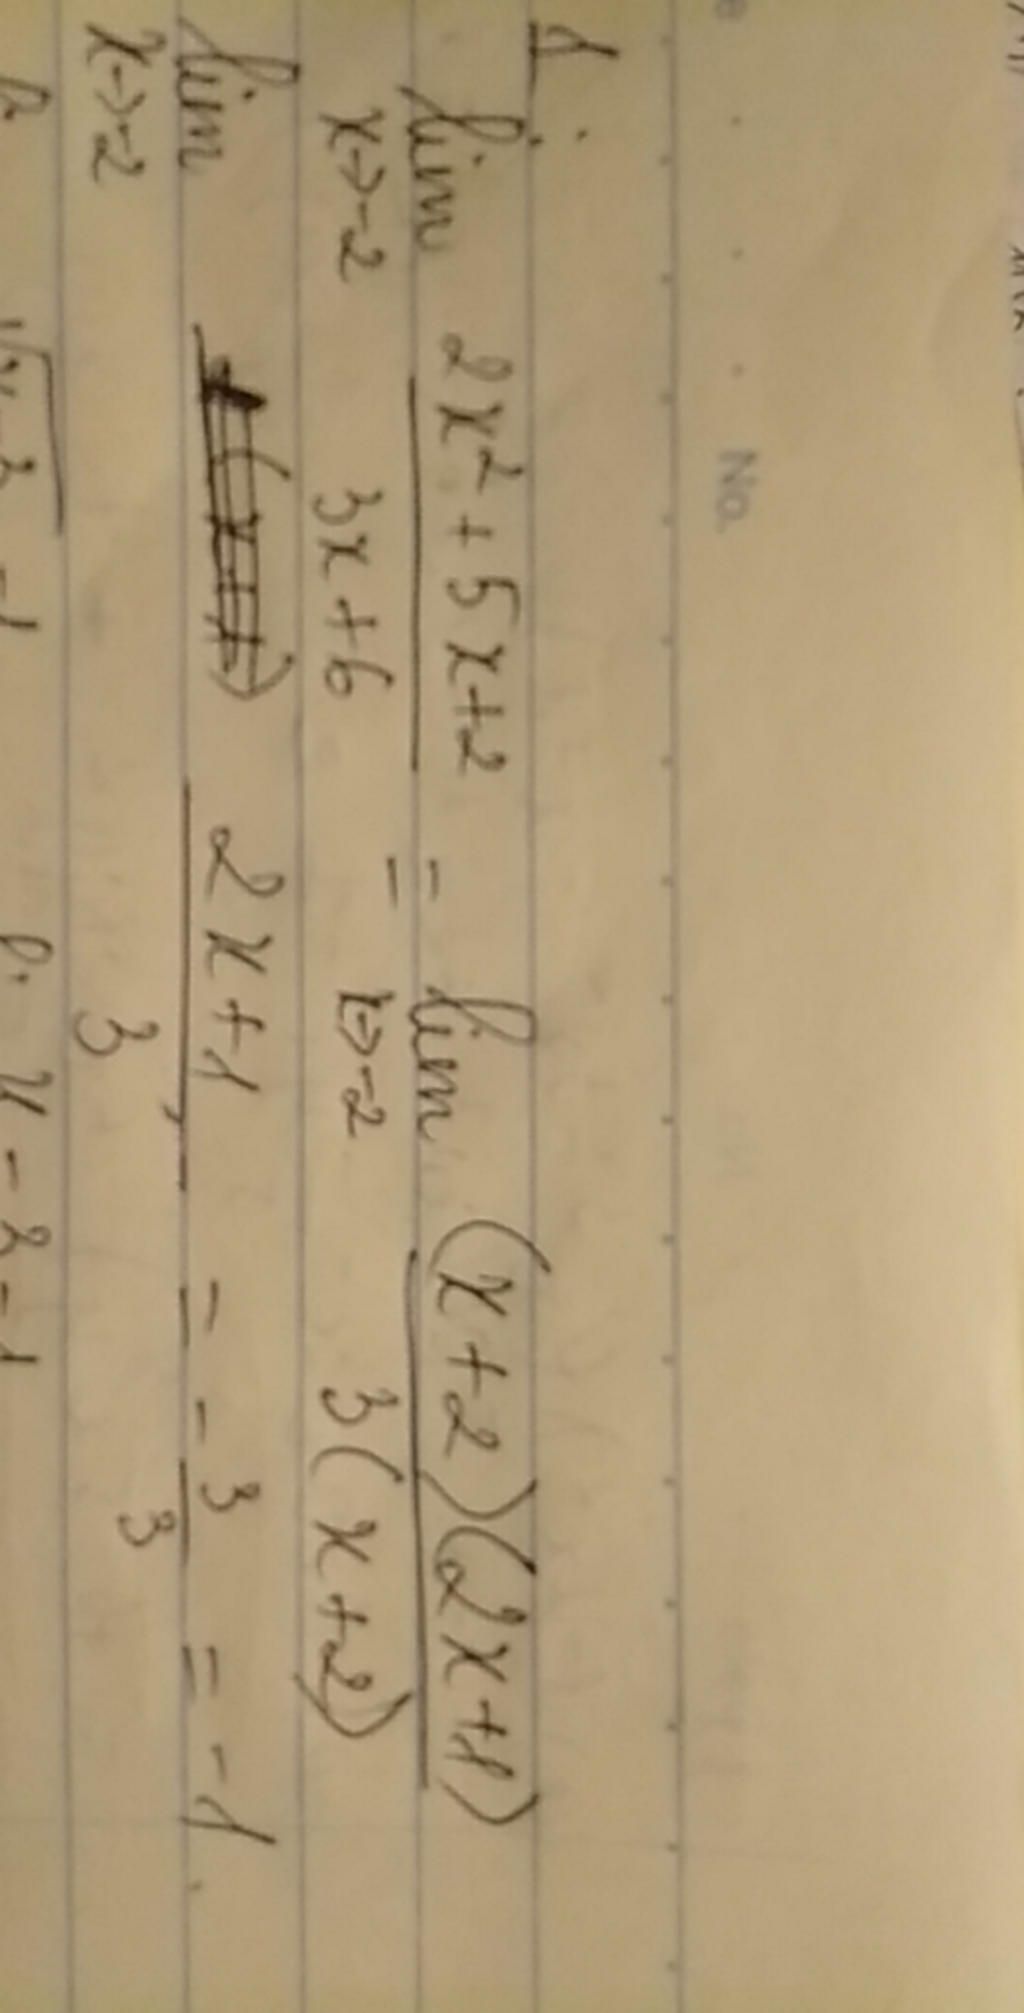 No.
1.
lim x→-2 (2x² + 5x+2)/(3x+6) = lim x→-2 (x+2)(2x+1)/3(x+2)
lim x→-2 (2x+1)/3 = -3/3 = -1.